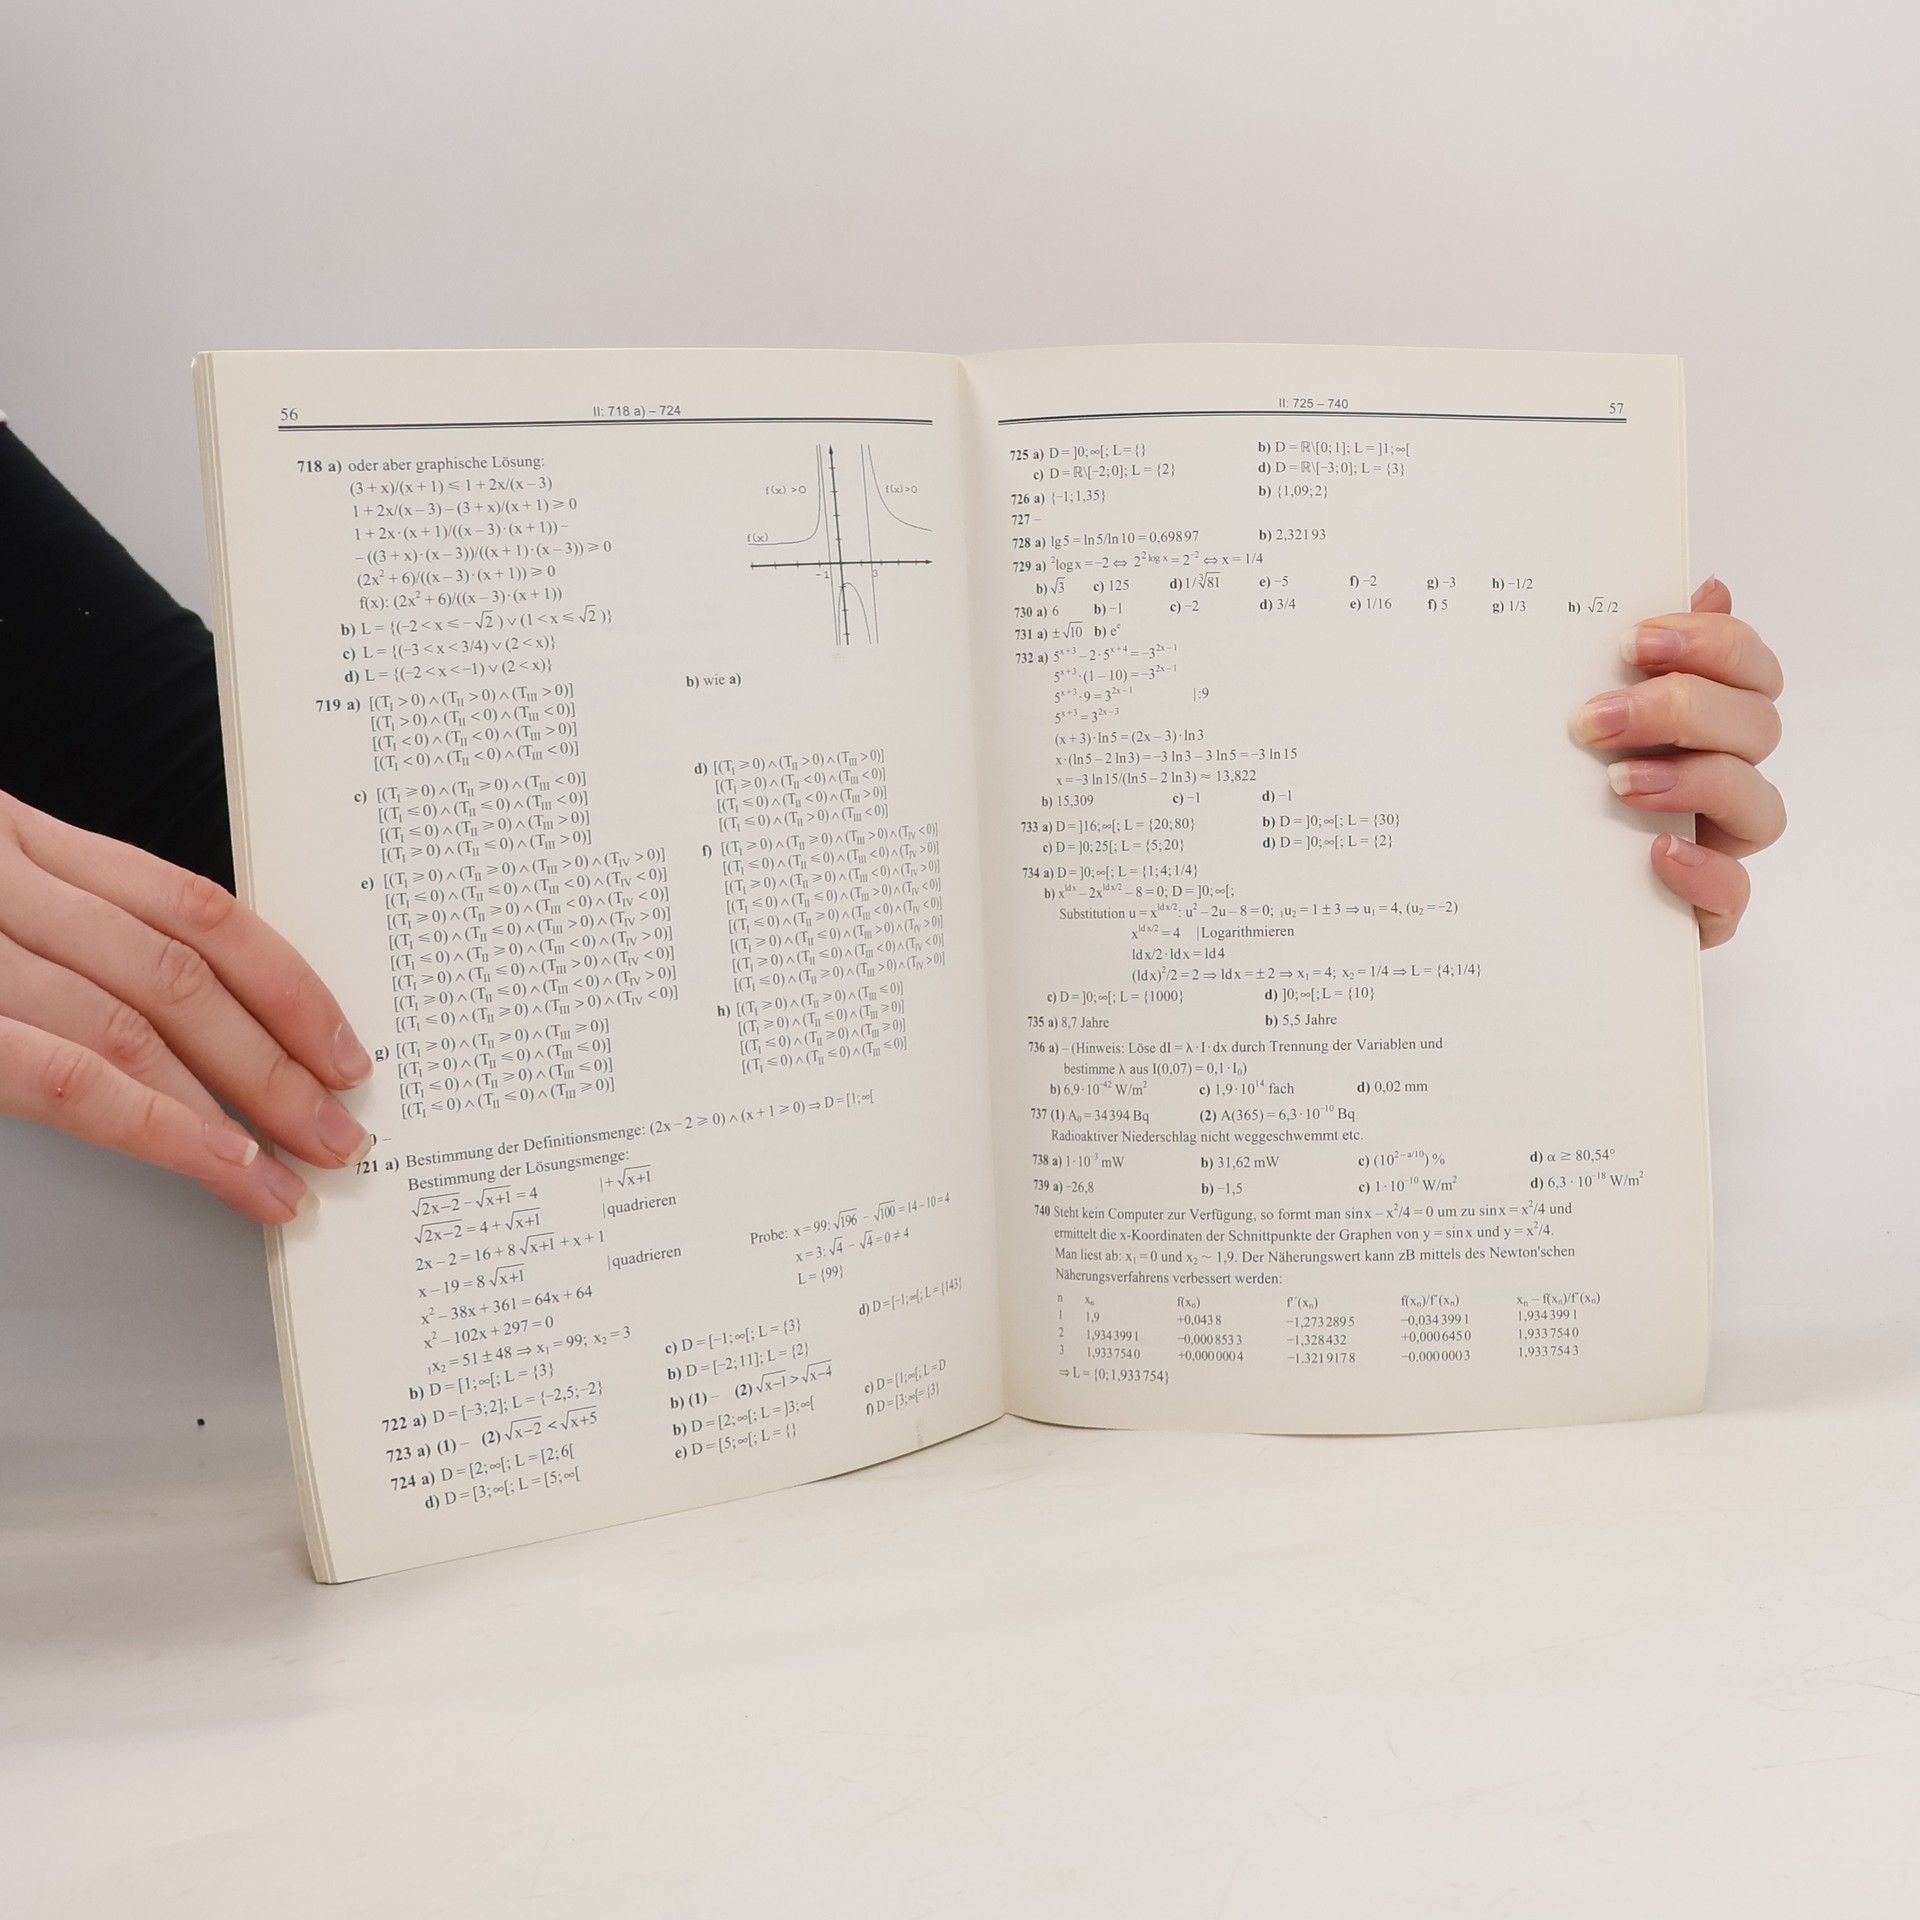 56 II: 718 a) – 724
718 a) oder aber graphische Lösung:
(3 + x)/(x + 1) ≤ 1 + 2x/(x – 3)
1 + 2x/(x – 3) – (3 + x)/(x + 1) ≥ 0
1 + 2x·(x + 1)/((x – 3)·(x + 1)) –
– ((3 + x)·(x – 3))/((x + 1)·(x – 3)) ≥ 0
(2x² + 6)/((x – 3)·(x + 1)) ≥ 0
f(x): (2x² + 6)/((x – 3)·(x + 1))
f(x) >0 f(x)>0
f(x)
–1 3
b) L = {(–2 < x ≤ –√2) ∨ (1 < x ≤ √2)}
c) L = {(–3 < x < 3/4) ∨ (2 < x)}
d) L = {(–2 < x < –1) ∨ (2 < x)}
719 a) [(T_I > 0) ∧ (T_II > 0) ∧ (T_III > 0)] b) wie a)
[(T_I > 0) ∧ (T_II < 0) ∧ (T_III < 0)]
[(T_I < 0) ∧ (T_II < 0) ∧ (T_III > 0)]
[(T_I < 0) ∧ (T_II < 0) ∧ (T_III < 0)]
c) [(T_I ≥ 0) ∧ (T_II ≥ 0) ∧ (T_III < 0)]
[(T_I ≤ 0) ∧ (T_II ≤ 0) ∧ (T_III < 0)]
[(T_I ≤ 0) ∧ (T_II ≥ 0) ∧ (T_III > 0)]
[(T_I ≥ 0) ∧ (T_II ≤ 0) ∧ (T_III > 0)]
d) [(T_I ≥ 0) ∧ (T_II > 0) ∧ (T_III > 0)]
[(T_I ≥ 0) ∧ (T_II < 0) ∧ (T_III < 0)]
[(T_I ≤ 0) ∧ (T_II < 0) ∧ (T_III > 0)]
[(T_I ≤ 0) ∧ (T_II > 0) ∧ (T_III < 0)]
e) [(T_I ≥ 0) ∧ (T_II ≥ 0) ∧ (T_III > 0) ∧ (T_IV > 0)]
[(T_I ≤ 0) ∧ (T_II ≤ 0) ∧ (T_III < 0) ∧ (T_IV < 0)]
[(T_I ≥ 0) ∧ (T_II ≥ 0) ∧ (T_III < 0) ∧ (T_IV < 0)]
[(T_I ≤ 0) ∧ (T_II ≤ 0) ∧ (T_III > 0) ∧ (T_IV > 0)]
[(T_I ≤ 0) ∧ (T_II ≥ 0) ∧ (T_III < 0) ∧ (T_IV > 0)]
[(T_I ≥ 0) ∧ (T_II ≤ 0) ∧ (T_III > 0) ∧ (T_IV < 0)]
[(T_I ≥ 0) ∧ (T_II ≤ 0) ∧ (T_III < 0) ∧ (T_IV > 0)]
[(T_I ≤ 0) ∧ (T_II ≥ 0) ∧ (T_III > 0) ∧ (T_IV < 0)]
f) [(T_I ≥ 0) ∧ (T_II ≥ 0) ∧ (T_III > 0) ∧ (T_IV < 0)]
[(T_I ≤ 0) ∧ (T_II ≤ 0) ∧ (T_III < 0) ∧ (T_IV > 0)]
[(T_I ≥ 0) ∧ (T_II ≥ 0) ∧ (T_III < 0) ∧ (T_IV > 0)]
[(T_I ≤ 0) ∧ (T_II ≤ 0) ∧ (T_III > 0) ∧ (T_IV < 0)]
[(T_I ≤ 0) ∧ (T_II ≥ 0) ∧ (T_III < 0) ∧ (T_IV < 0)]
[(T_I ≥ 0) ∧ (T_II ≤ 0) ∧ (T_III > 0) ∧ (T_IV > 0)]
[(T_I ≥ 0) ∧ (T_II ≤ 0) ∧ (T_III < 0) ∧ (T_IV < 0)]
[(T_I ≤ 0) ∧ (T_II ≥ 0) ∧ (T_III > 0) ∧ (T_IV > 0)]
g) [(T_I ≥ 0) ∧ (T_II ≥ 0) ∧ (T_III ≥ 0)]
[(T_I ≥ 0) ∧ (T_II ≤ 0) ∧ (T_III ≤ 0)]
[(T_I ≤ 0) ∧ (T_II ≥ 0) ∧ (T_III ≤ 0)]
[(T_I ≤ 0) ∧ (T_II ≤ 0) ∧ (T_III ≥ 0)]
h) [(T_I ≥ 0) ∧ (T_II ≥ 0) ∧ (T_III ≤ 0)]
[(T_I ≥ 0) ∧ (T_II ≤ 0) ∧ (T_III ≥ 0)]
[(T_I ≤ 0) ∧ (T_II ≥ 0) ∧ (T_III ≥ 0)]
[(T_I ≤ 0) ∧ (T_II ≤ 0) ∧ (T_III ≤ 0)]
0 –
721 a) Bestimmung der Definitionsmenge: (2x – 2 ≥ 0) ∧ (x + 1 ≥ 0) ⇒ D = [1; ∞[
Bestimmung der Lösungsmenge:
√2x–2 – √x+1 = 4 | + √x+1
√2x–2 = 4 + √x+1 | quadrieren
2x – 2 = 16 + 8 √x+1 + x + 1
x – 19 = 8 √x+1 | quadrieren
x² – 38x + 361 = 64x + 64
x² – 102x + 297 = 0
₁x₂ = 51 ± 48 ⇒ x₁ = 99; x₂ = 3
Probe: x = 99: √196 – √100 = 14 – 10 = 4
x = 3: √4 – √4 = 0 ≠ 4
L = {99}
b) D = [1; ∞[; L = {3} c) D = [–1; ∞[; L = {3} d) D = [–1; ∞[; L = {143}
722 a) D = [–3; 2]; L = {–2,5; –2} b) D = [–2; 11]; L = {2}
723 a) (1) – (2) √x–2 < √x+5 b) (1) – (2) √x–1 > √x–4
724 a) D = [2; ∞[; L = [2; 6[ b) D = [2; ∞[; L = ]3; ∞[ c) D = [1; ∞[; L = D
d) D = [3; ∞[; L = [5; ∞[ e) D = [5; ∞[; L = {} f) D = [3; ∞[= {3}
II: 725 – 740 57
725 a) D = ]0; ∞[; L = {} b) D = ℝ\[0; 1]; L = ]1; ∞[
c) D = ℝ\[–2; 0]; L = {2} d) D = ℝ\[–3; 0]; L = {3}
726 a) {–1; 1,35} b) {1,09; 2}
727 –
728 a) lg 5 = ln 5/ln 10 = 0,69897 b) 2,32193
729 a) ²log x = –2 ⇔ 2^(²log x) = 2⁻² ⇔ x = 1/4
b) √3 c) 125 d) 1/∛81 e) –5 f) –2 g) –3 h) –1/2
730 a) 6 b) –1 c) –2 d) 3/4 e) 1/16 f) 5 g) 1/3 h) √2 /2
731 a) ±√10 b) eᵉ
732 a) 5^(x+3) – 2·5^(x+4) = –3^(2x–1)
5^(x+3)·(1 – 10) = –3^(2x–1)
5^(x+3)·9 = 3^(2x–1) |:9
5^(x+3) = 3^(2x–3)
(x + 3)·ln 5 = (2x – 3)·ln 3
x·(ln 5 – 2 ln 3) = –3 ln 3 – 3 ln 5 = –3 ln 15
x = –3 ln 15/(ln 5 – 2 ln 3) ≈ 13,822
b) 15,309 c) –1 d) –1
733 a) D = ]16; ∞[; L = {20; 80} b) D = ]0; ∞[; L = {30}
c) D = ]0; 25[; L = {5; 20} d) D = ]0; ∞[; L = {2}
734 a) D = ]0; ∞[; L = {1; 4; 1/4}
b) x^(ld x) – 2x^(ld x/2) – 8 = 0; D = ]0; ∞[;
Substitution u = x^(ld x/2): u² – 2u – 8 = 0; ₁u₂ = 1 ± 3 ⇒ u₁ = 4, (u₂ = –2)
x^(ld x/2) = 4 |Logarithmieren
ld x/2 · ld x = ld 4
(ld x)²/2 = 2 ⇒ ld x = ± 2 ⇒ x₁ = 4; x₂ = 1/4 ⇒ L = {4; 1/4}
c) D = ]0; ∞[; L = {1000} d) ]0; ∞[; L = {10}
735 a) 8,7 Jahre b) 5,5 Jahre
736 a) – (Hinweis: Löse dI = λ · I · dx durch Trennung der Variablen und
bestimme λ aus I(0,07) = 0,1 · I₀)
b) 6,9·10⁻⁴² W/m² c) 1,9·10¹⁴ fach d) 0,02 mm
737 (1) A₀ = 34394 Bq (2) A(365) = 6,3·10⁻¹⁰ Bq
Radioaktiver Niederschlag nicht weggeschwemmt etc.
738 a) 1·10⁻³ mW b) 31,62 mW c) (10^(2–a/10)) % d) α ≥ 80,54°
739 a) –26,8 b) –1,5 c) 1·10⁻¹⁰ W/m² d) 6,3 · 10⁻¹⁸ W/m²
740 Steht kein Computer zur Verfügung, so formt man sin x – x²/4 = 0 um zu sin x = x²/4 und
ermittelt die x-Koordinaten der Schnittpunkte der Graphen von y = sin x und y = x²/4.
Man liest ab: x₁ = 0 und x₂ ~ 1,9. Der Näherungswert kann zB mittels des Newton'schen
Näherungsverfahrens verbessert werden:
n xₙ f(xₙ) f'(xₙ) f(xₙ)/f'(xₙ) xₙ – f(xₙ)/f'(xₙ)
1 1,9 +0,0438 –1,2732895 –0,0343991 1,9343991
2 1,9343991 –0,0008533 –1,328432 +0,0006450 1,9337540
3 1,9337540 +0,0000004 –1.3219178 –0.0000003 1,9337543
⇒ L = {0; 1,933754}